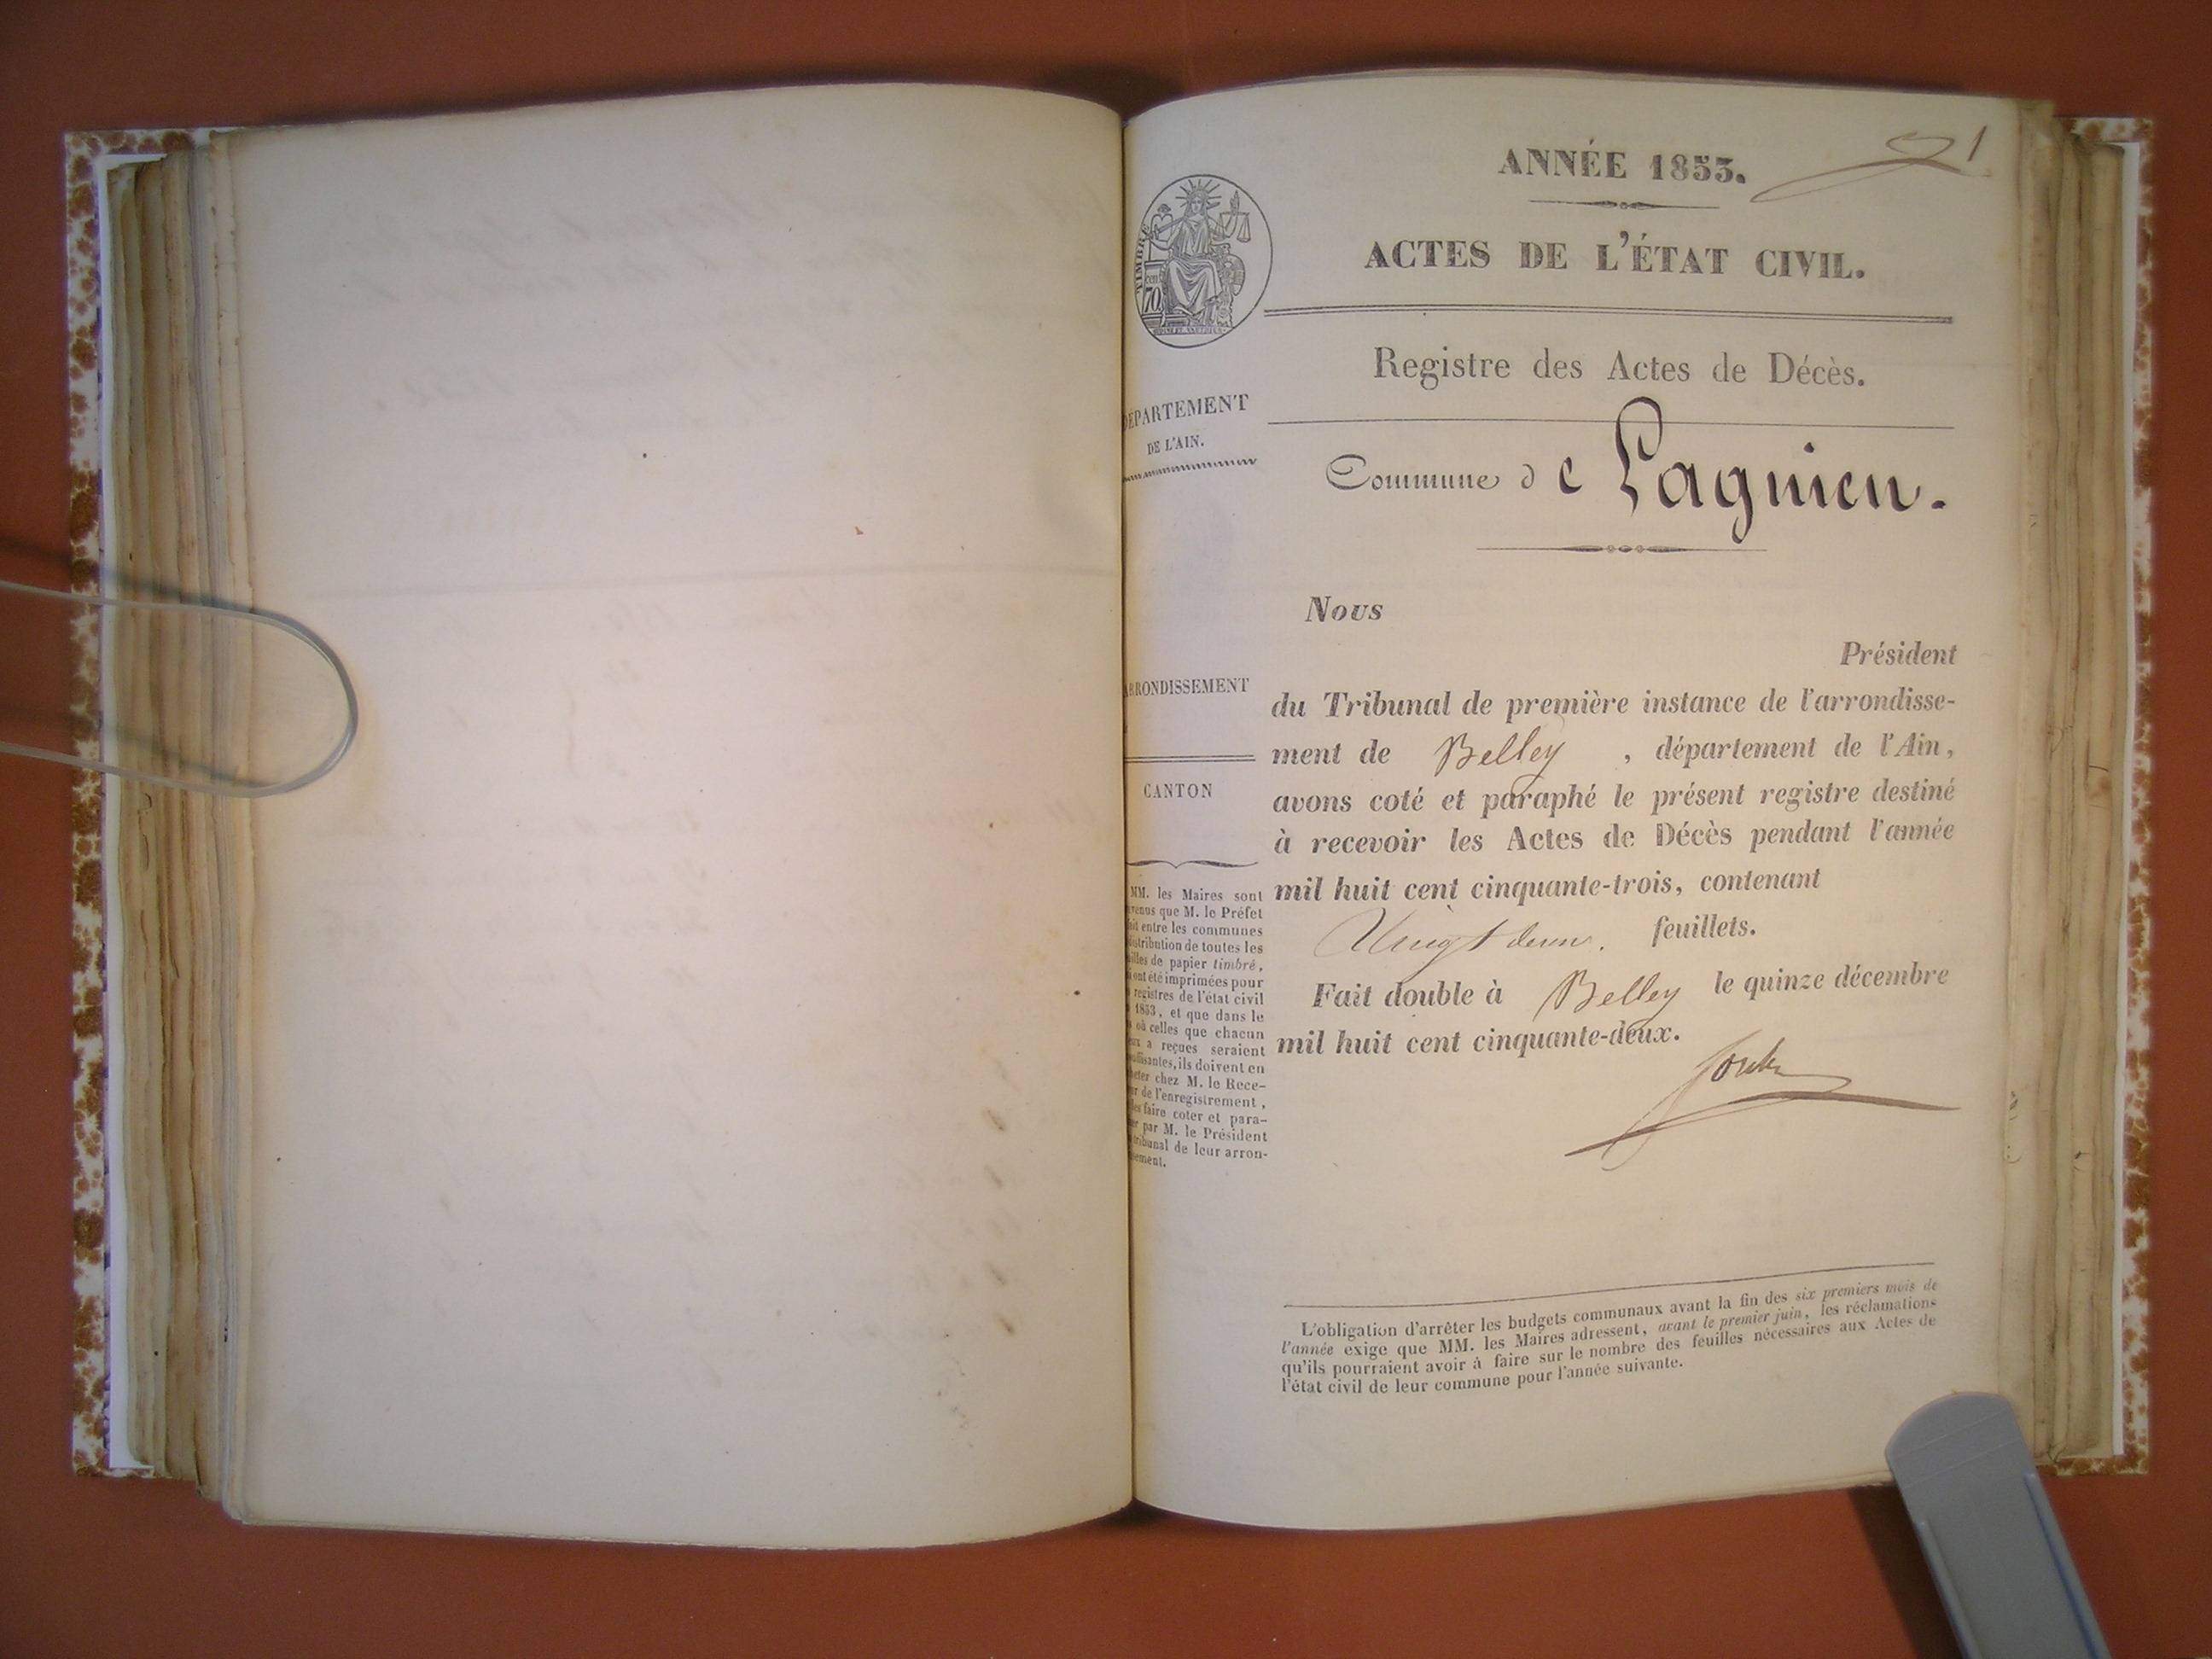 1
ANNÉE 1853.
ACTES DE L'ÉTAT CIVIL.
TIMBRE
70
Registre des Actes de Décès.
DÉPARTEMENT
DE L'AIN.
Commune de Lagnieu.
Nous
Président
du Tribunal de première instance de l'arrondisse-
ment de Belley , département de l'Ain,
avons coté et paraphé le présent registre destiné
à recevoir les Actes de Décès pendant l'année
mil huit cent cinquante-trois, contenant
Vingt deux. feuillets.
Fait double à Belley le quinze décembre
mil huit cent cinquante-deux.
ARRONDISSEMENT
CANTON
MM. les Maires sont
venus que M. le Préfet
ait entre les communes
istribution de toutes les
illes de papier timbré,
i ont été imprimées pour
s registres de l'état civil
1853, et que dans le
s où celles que chacun
eux a reçues seraient
uffisantes, ils doivent en
heter chez M. le Rece-
ur de l'enregistrement,
les faire coter et para-
er par M. le Président
tribunal de leur arron-
sement.
L'obligation d'arrêter les budgets communaux avant la fin des six premiers mois de
l'année exige que MM. les Maires adressent, avant le premier juin, les réclamations
qu'ils pourraient avoir à faire sur le nombre des feuilles nécessaires aux Actes de
l'état civil de leur commune pour l'année suivante.